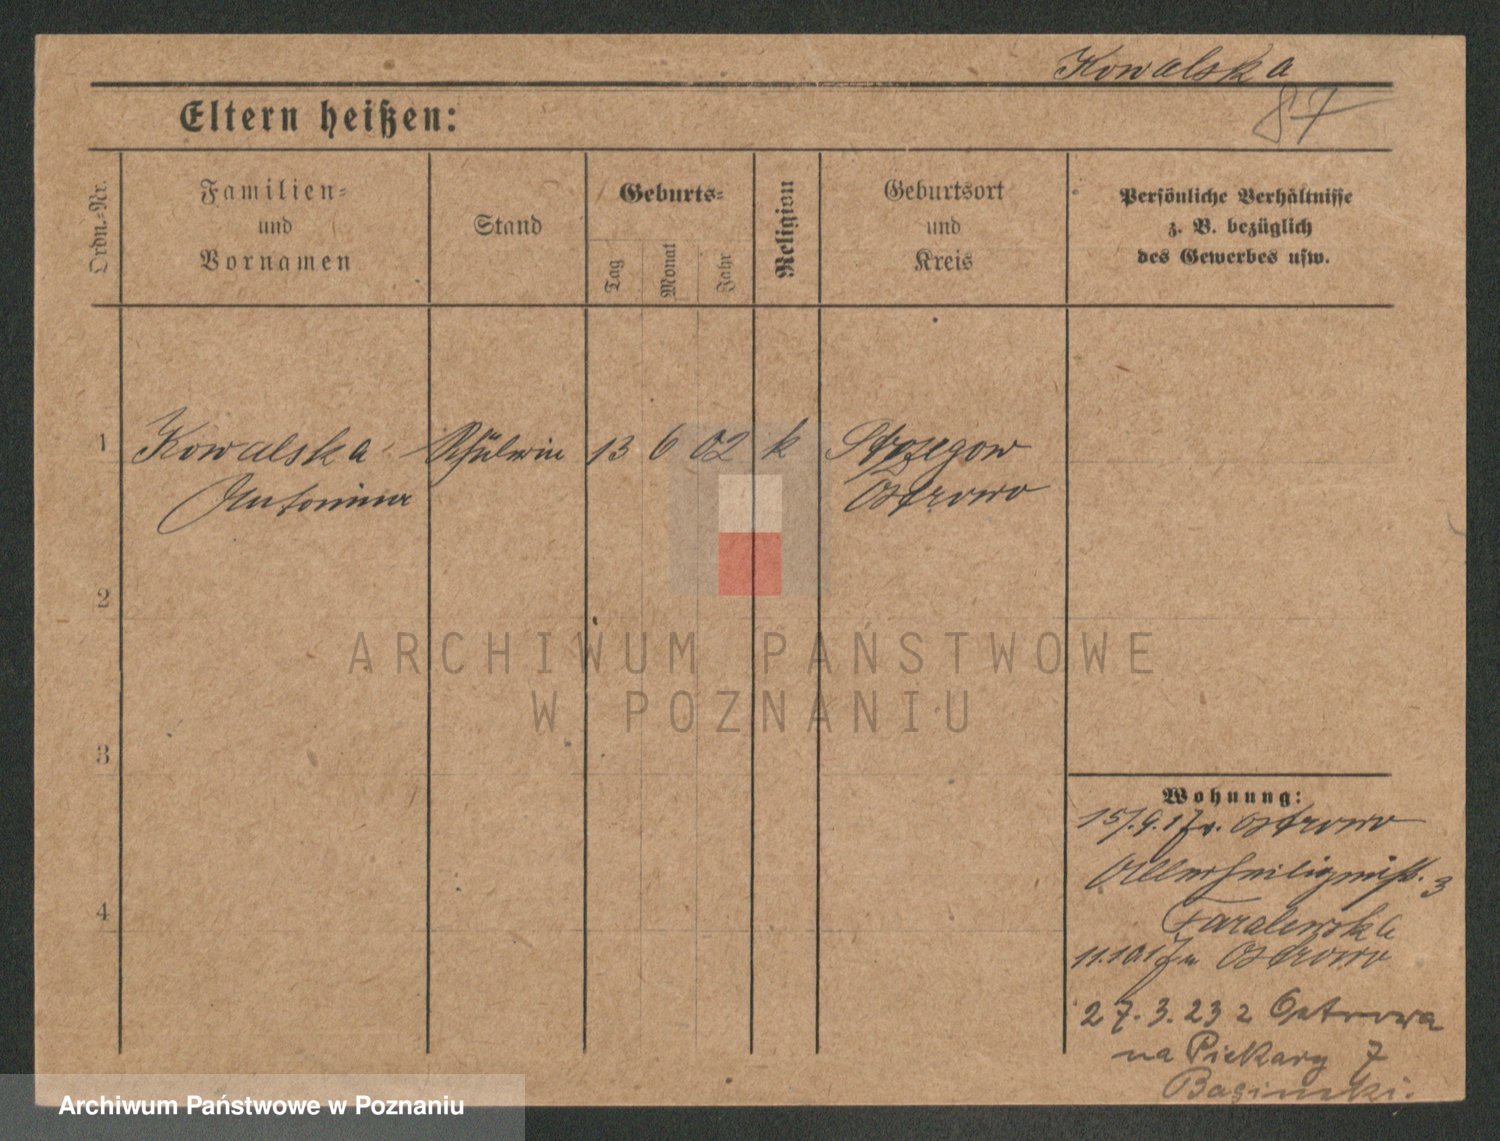 Kowalska
87
Eltern heißen:
Ordn.-Nr.
Familien-
und
Vornamen
Stand
Geburts-
Tag
Monat
Jahr
Religion
Geburtsort
und
Kreis
Persönliche Verhältnisse
z. B. bezüglich
des Gewerbes usw.
1 Kowalska Schülerin 13 6 02 k Strzegow
Antonina Ostrowo
2
3
4
Wohnung:
15/.9.17 v. Ostrowo
Allerheiligenstr. 3
11.10.17 n Ostrowo
27.3.23 z Ostrowa
na Piekary 7
Basinski.
ARCHIWUM PAŃSTWOWE
W POZNANIU
Archiwum Państwowe w Poznaniu